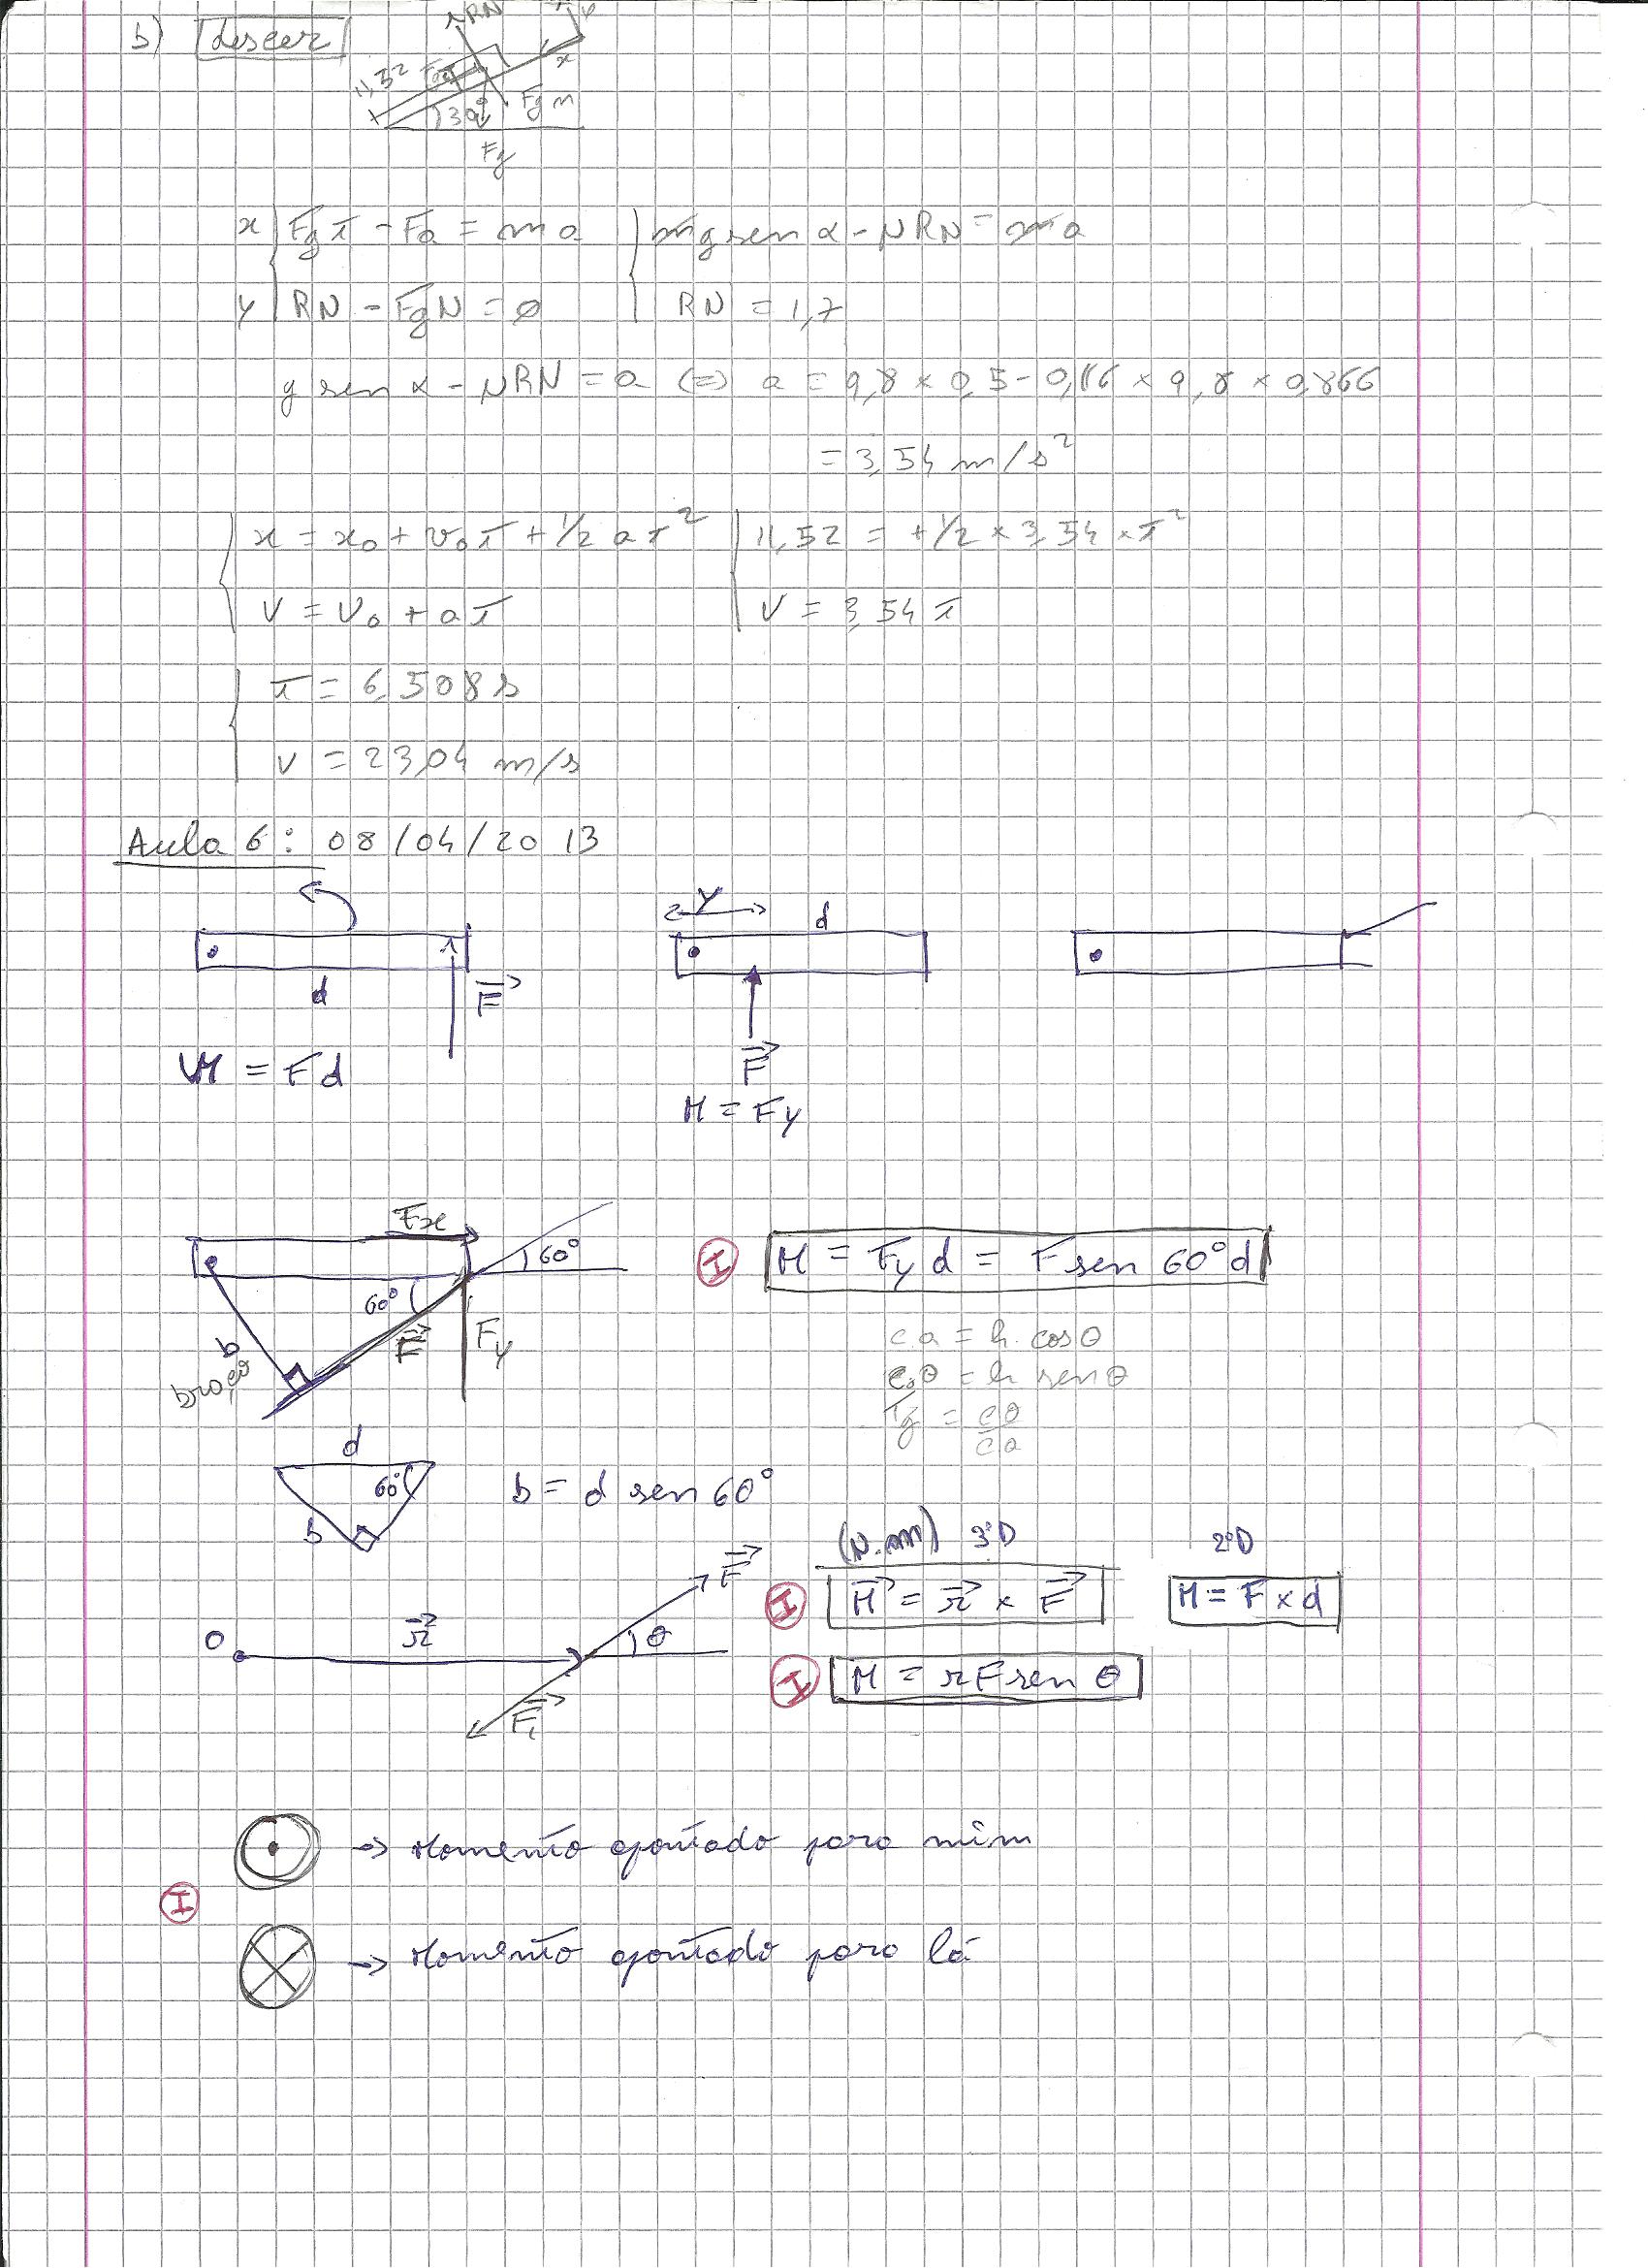 b) descer
RN y
11,52 Fa x
30° Fgn
Fg
x { Fgt - Fa = ma { mg sen α - μRN = ma
y { RN - FgN = 0 { RN = 1,7
g sen α - μRN = a (=) a = 9,8 × 0,5 - 0,16 × 9,8 × 0,866
= 3,54 m/s²
{ x = x₀ + v₀t + 1/2 at² { 11,52 = + 1/2 × 3,54 × t²
{ v = v₀ + at { v = 3,54 t
{ t = 6,508 s
{ v = 23,04 m/s
Aula 6: 08/04/2013
y d
d F⃗
F⃗
M = Fd
M = Fy
Fx
60° M = Fy d = F sen 60° d
60° F⃗ Fy
b
braço
ca = h. cosθ
co = h senθ
Tg = co/ca
d
60° b = d sen 60°
b
(N.m) 3D 2D
F⃗ I M⃗ = r⃗ × F⃗ M = F × d
O r⃗ θ
I M = rF sen θ
F⃗₁
→ Momento apontado para mim
I
→ Momento apontado para lá